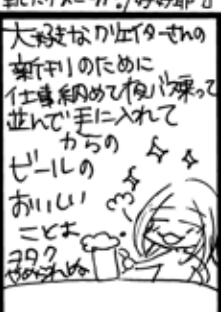 大好きなクリエイターさんの
新刊のために
仕事納めて夜バス乗って
並んで手に入れて
からの
ビールの
おいしい
ことよ
ヲタク
やめられぬ